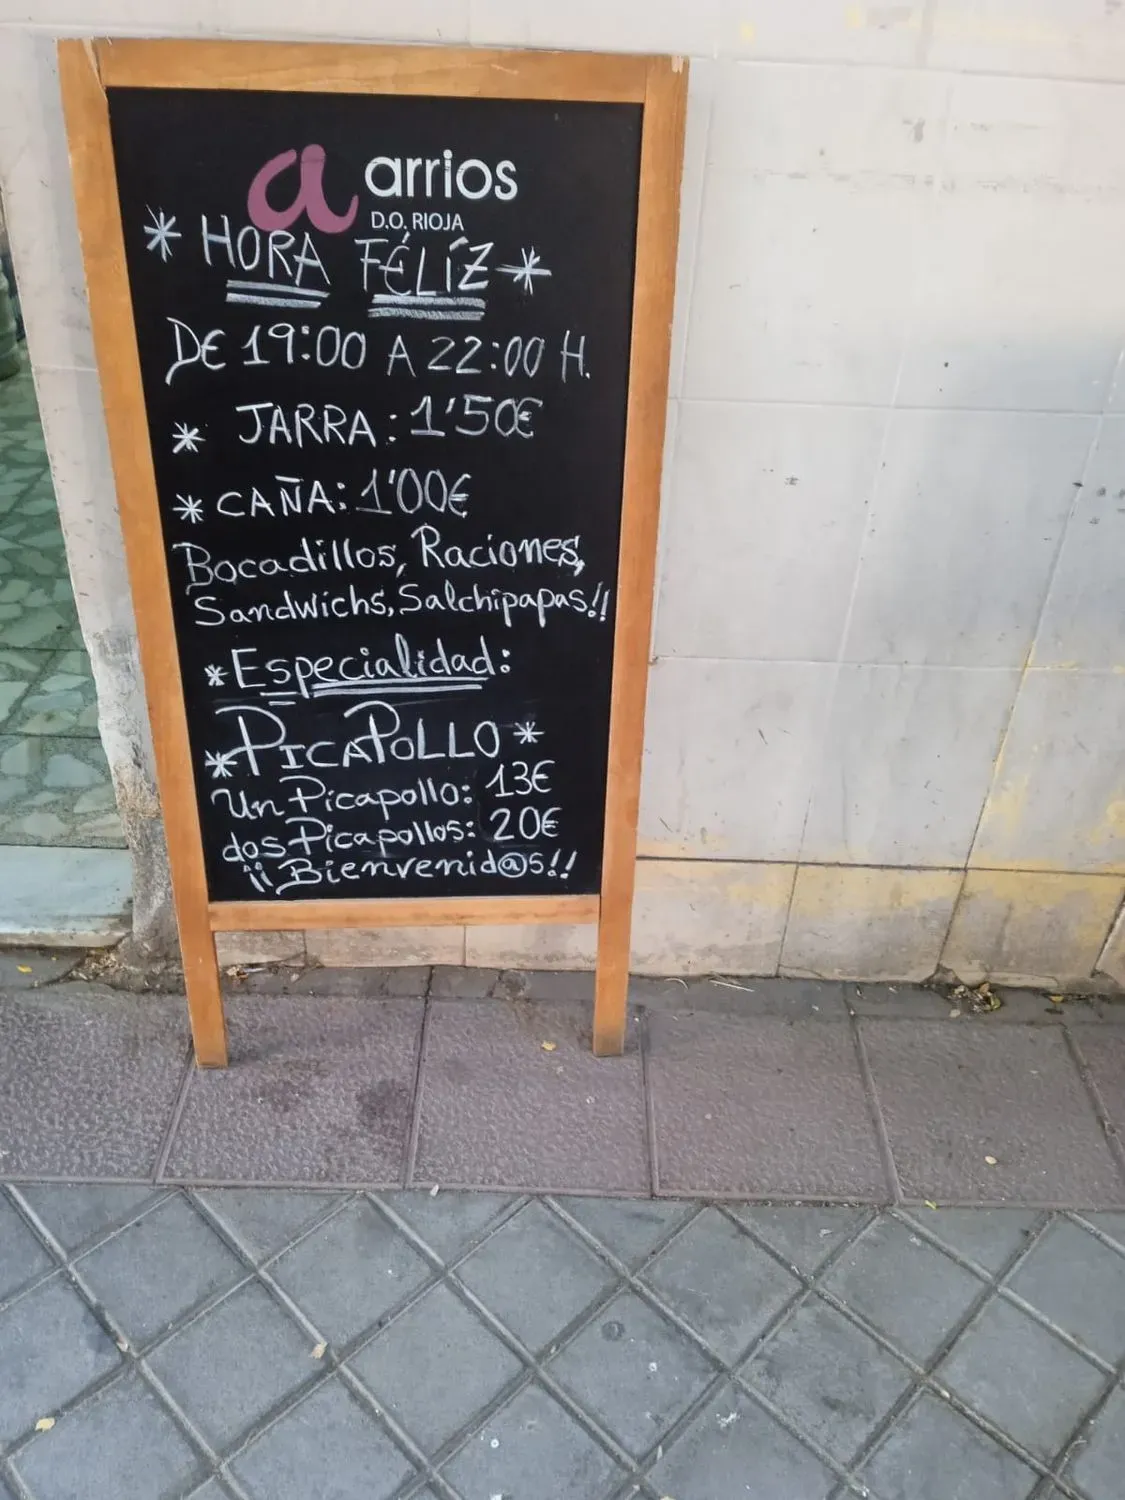 a arrios
D.O. RIOJA
* HORA FÉLÍZ *
DE 19:00 A 22:00 H.
* JARRA: 1'50€
* CAÑA: 1'00€
Bocadillos, Raciones,
Sandwichs, Salchipapas!!
* Especialidad:
* PICAPOLLO *
Un Picapollo: 13€
dos Picapollos: 20€
¡¡Bienvenid@s!!